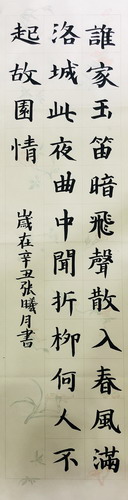 誰家玉笛暗飛聲散入春風滿
洛城此夜曲中聞折柳何人不
起故園情
歲在辛丑張曦月書